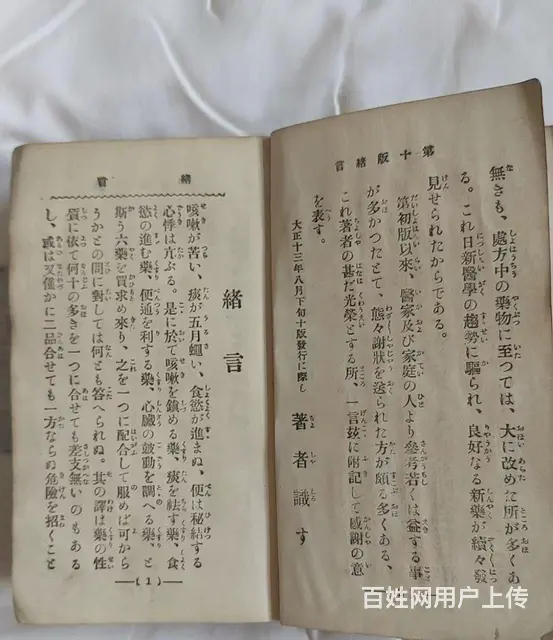 第十版緒言
無きも、處方中の藥物に至つては、大に改めた所が多くあ
る。これ日新醫學の趨勢に驅られ、良好なる新藥が續々發
見せられたからである。
第初版以來、醫家及び家庭の人より參考若くは益する事
が多かつたとて、態々謝狀を送られた方が頗る多くある、
これ著者の甚だ光榮とする所、一言玆に附記して感謝の意
を表す。
大正十三年八月下旬十版發行に際し
著者識す
緒言
緒言
咳嗽が苦い、痰が五月蠅い、食慾が進まぬ、便は秘結する
心悸は亢ぶる。是に於て咳嗽を鎭める藥、痰を祛す藥、食
慾の進む藥、便通を利する藥、心臟の鼓動を調へる藥、と
斯う六藥を買求め來り、之を一つに配合して服めば可から
うかとの問に對しては何とも答へられぬ。其の譯は藥の性
質に依て何十の多きを一つに合せても差支無いのもある
し、或は又僅かに二品合せても一方ならぬ危險を招くこと
(1)
百姓网用户上传